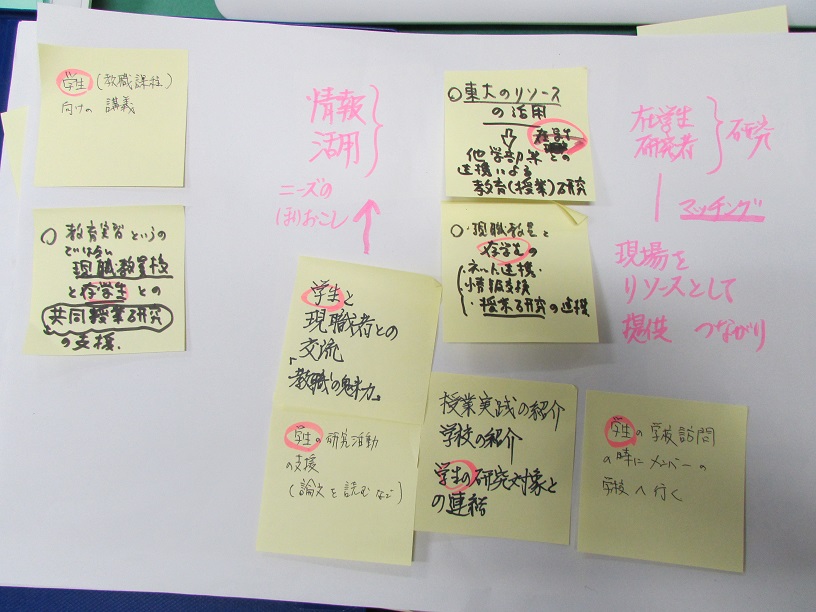 学生(教職課程)
向けの 講義
○ 教育実習というの
ではない
現職教員校
と在学生との
共同授業研究
の支援.
情報
活用
ニーズの
ほりおこし
学生と
現職者との
交流
「教職の魅力」
学生の研究活動
の支援
(論文を読むなど)
○東大のリソース
の活用
在学生
他学部等との
連携による
教育(授業)研究
○・現職教員と
在学生の
ネット連携・
情報支援
・授業研究の連携
授業実践の紹介
学校の紹介
学生の研究対象と
の連結
在学生
研究者
研究
マッチング
現場を
リソースとして
提供 つながり
学生の学校訪問
の時にメンバーの
学校へ行く